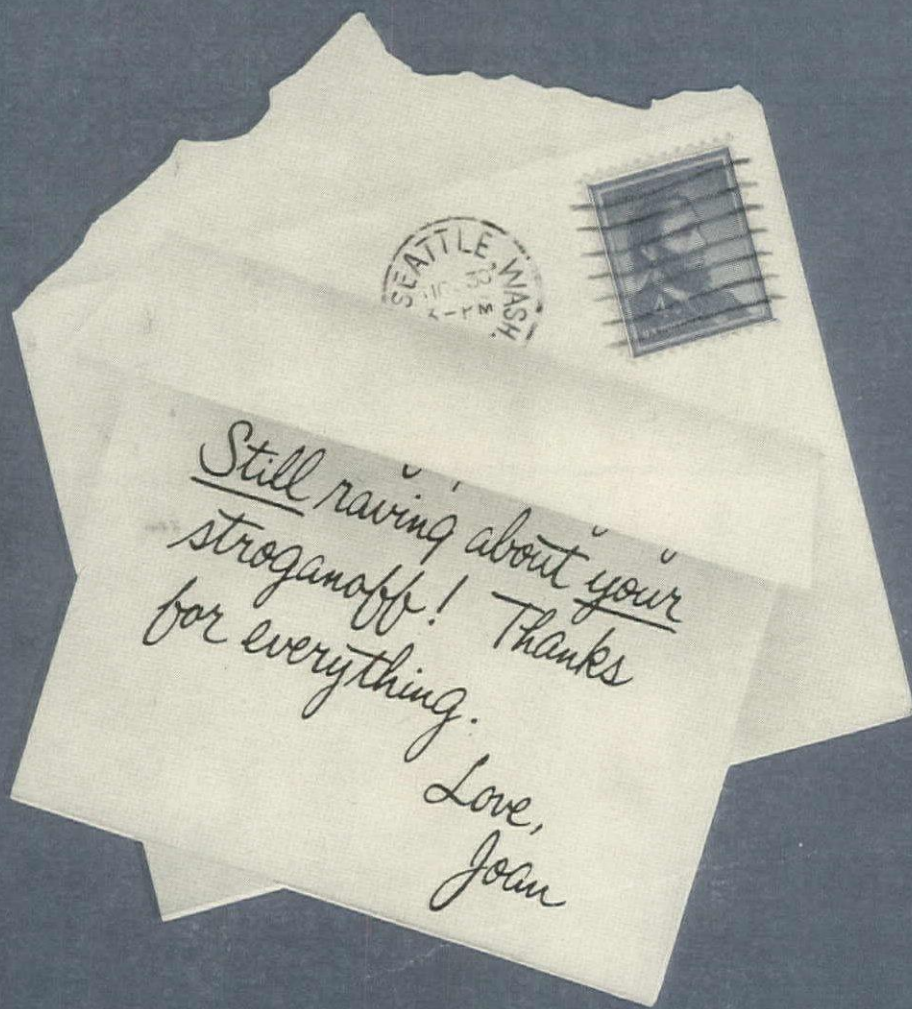 SEATTLE, WASH.
30
PM
Still raving about your
stroganoff! Thanks
for everything.
Love,
Joan